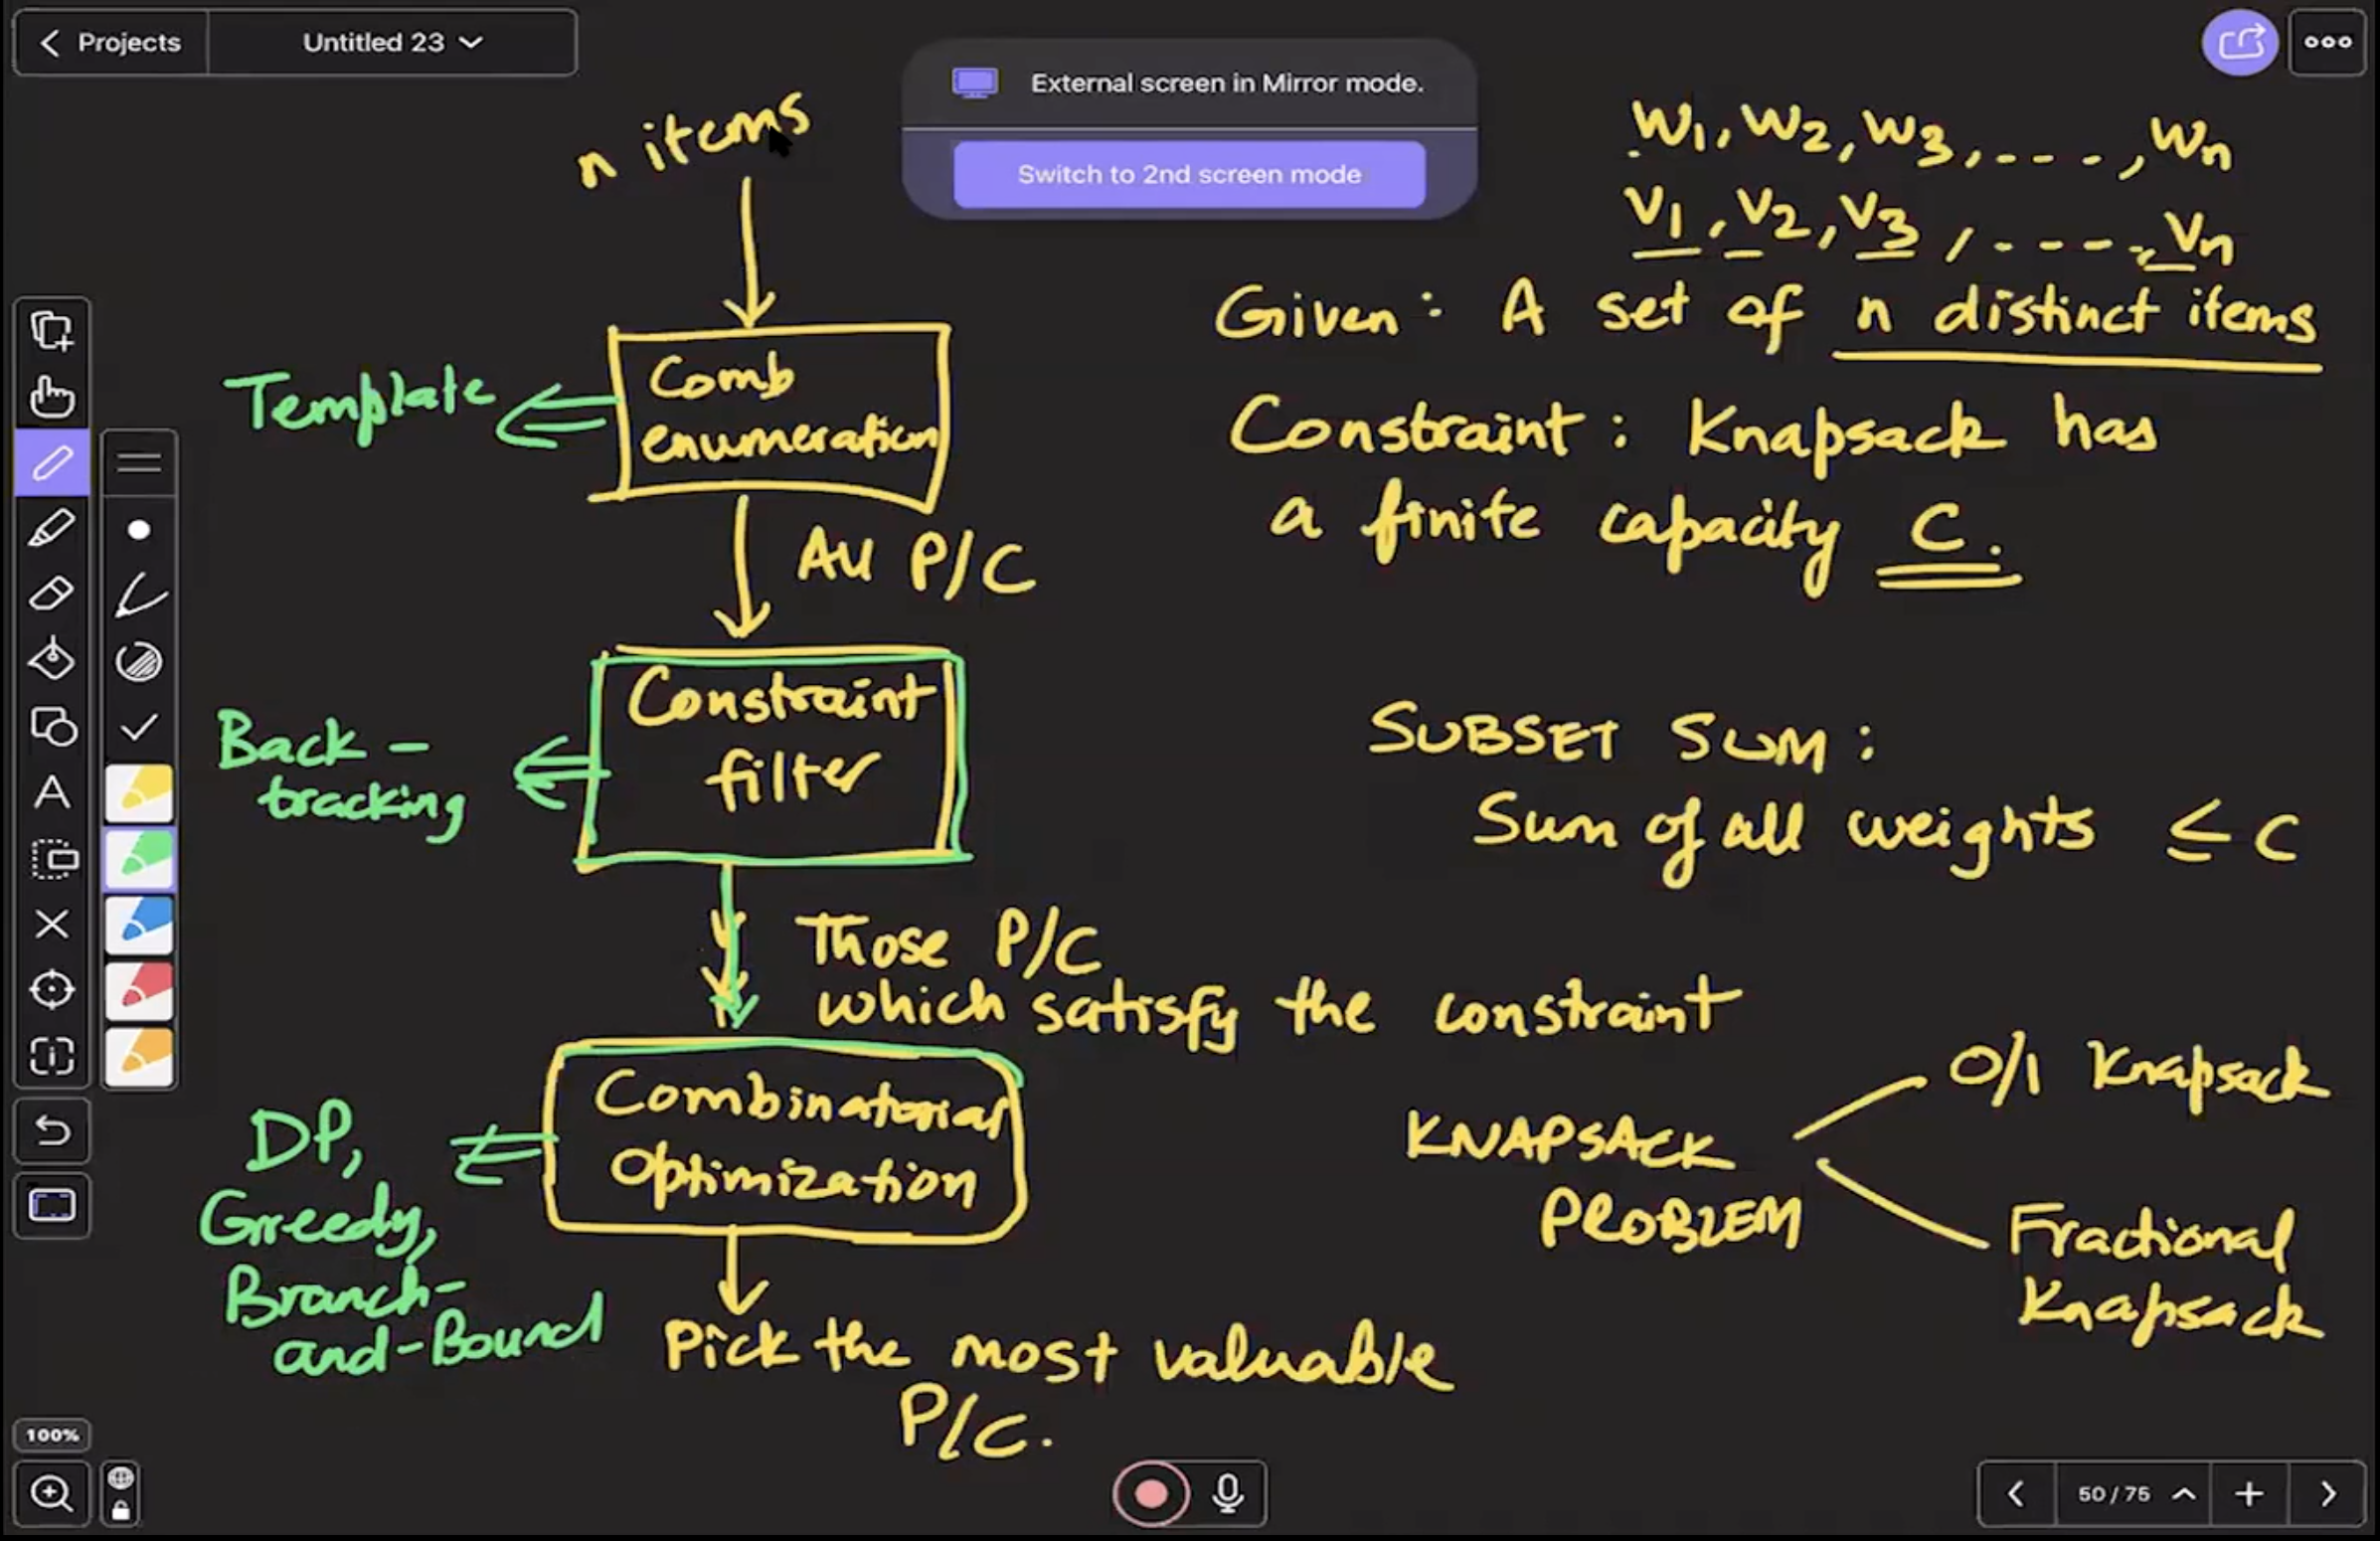 Projects
Untitled 23
External screen in Mirror mode.
Switch to 2nd screen mode
n items
Template
Comb
enumeration
All P/C
Back-
tracking
Constraint
filter
Those P/C
which satisfy the constraint
DP,
Greedy,
Branch-
and-Bound
Combinatorial
Optimization
Pick the most valuable
P/C.
W1, W2, W3, ----, Wn
V1, V2, V3, ----, Vn
Given: A set of n distinct items
Constraint: Knapsack has
a finite capacity C.
SUBSET SUM:
Sum of all weights ≤ C
KNAPSACK
PROBLEM
0/1 Knapsack
Fractional
Knapsack
100%
50 / 75